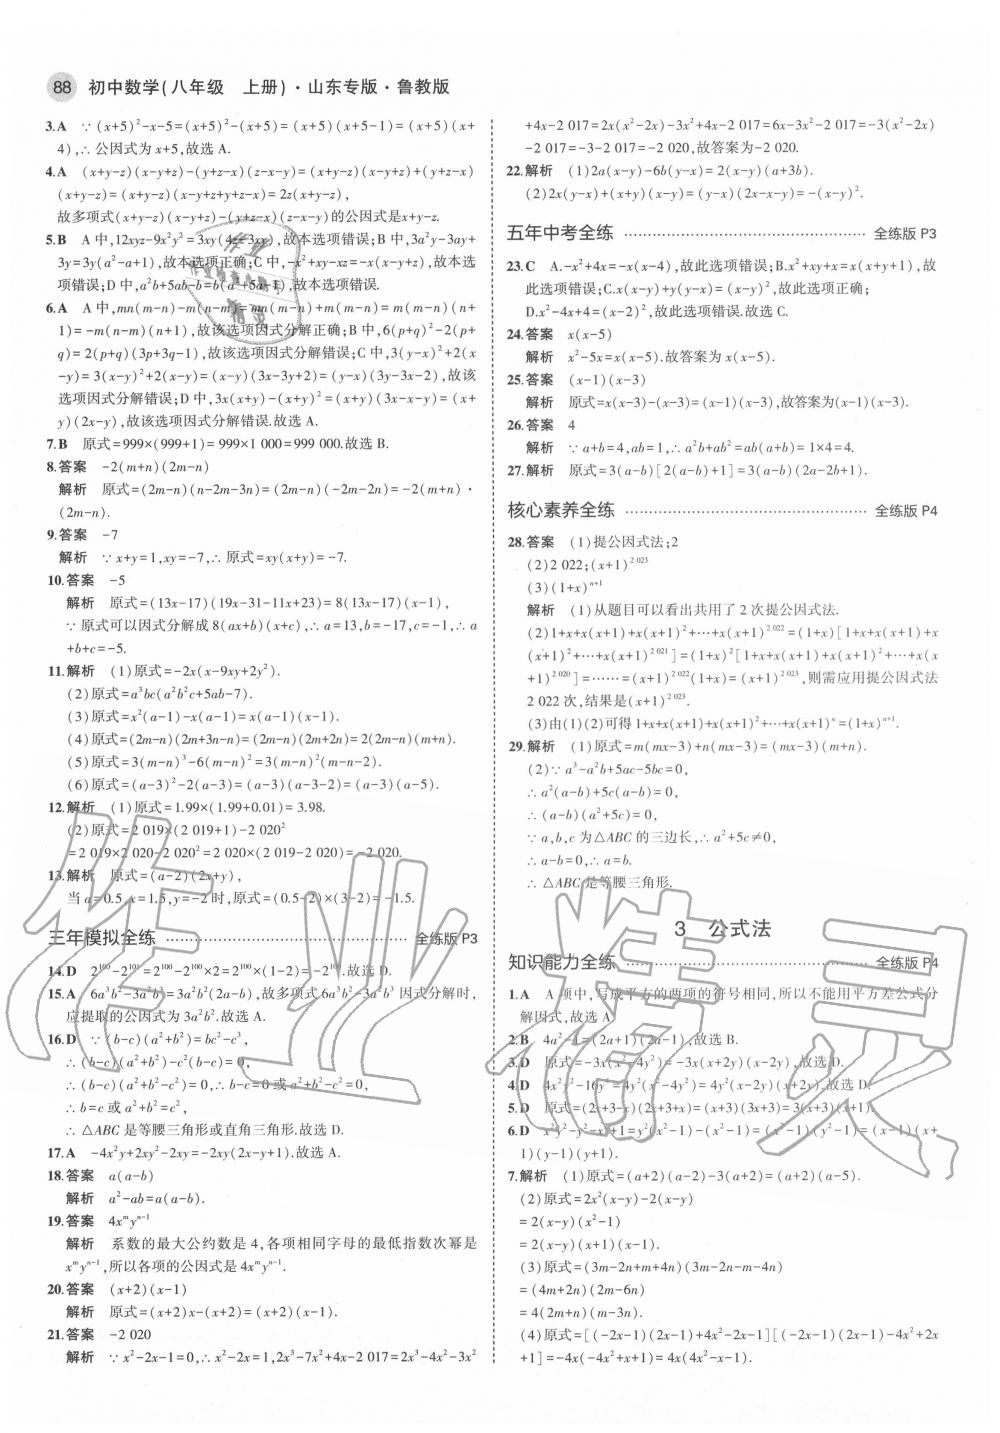 88 初中数学(八年级 上册)·山东专版·鲁教版
3.A ∵(x+5)²-x-5=(x+5)²-(x+5)=(x+5)(x+5-1)=(x+5)(x+
4),∴公因式为x+5,故选A.
4.A (x+y-z)(x-y+z)-(y+z-x)(z-x-y)=(x+y-z)(x-y+z)+(y+z-x)
(x+y-z)=(x+y-z)(x-y+z+y+z-x)=2z(x+y-z),
故多项式(x+y-z)(x-y+z)-(y+z-x)(z-x-y)的公因式是x+y-z.
5.B A中,12xyz-9x²y²=3xy(4z-3xy),故本选项错误;B中,3a²y-3ay+
3y=3y(a²-a+1),故本选项正确;C中,-x²+xy-xz=-x(x-y+z),故本选
项错误;D中,a²b+5ab-b=b(a²+5a-1),故本选项错误.
6.A A中,mn(m-n)-m(n-m)=mn(m-n)+m(m-n)=m(m-n)(n+
1)=-m(n-m)(n+1),故该选项因式分解正确;B中,6(p+q)²-2(p+
q)=2(p+q)(3p+3q-1),故该选项因式分解错误;C中,3(y-x)²+2(x
-y)=3(x-y)²+2(x-y)=(x-y)(3x-3y+2)=(y-x)(3y-3x-2),故该
选项因式分解错误;D中,3x(x+y)-(x+y)²=(x+y)(3x-x-y)=(x+
y)(2x-y),故该选项因式分解错误.故选A.
7.B 原式=999×(999+1)=999×1 000=999 000.故选B.
8.答案 -2(m+n)(2m-n)
解析 原式=(2m-n)(n-2m-3n)=(2m-n)(-2m-2n)=-2(m+n)·
(2m-n).
9.答案 -7
解析 ∵x+y=1,xy=-7,∴原式=xy(x+y)=-7.
10.答案 -5
解析 原式=(13x-17)(19x-31-11x+23)=8(13x-17)(x-1),
∵原式可以因式分解成8(ax+b)(x+c),∴a=13,b=-17,c=-1,∴a
+b+c=-5.
11.解析 (1)原式=-2x(x-9xy+2y²).
(2)原式=a³bc(a²b²c+5ab-7).
(3)原式=x²(a-1)-x(a-1)=x(a-1)(x-1).
(4)原式=(2m-n)(2m+3n-n)=(2m-n)(2m+2n)=2(2m-n)(m+n).
(5)原式=3(m-n)³-6(m-n)²=3(m-n)²(m-n-2).
(6)原式=(a-3)²-2(a-3)=(a-3)(a-3-2)=(a-3)(a-5).
12.解析 (1)原式=1.99×(1.99+0.01)=3.98.
(2)原式=2 019×(2 019+1)-2 020²
=2 019×2 020-2 020²=2 020×(2 019-2 020)=-2 020.
13.解析 原式=(a-2)(2x+y),
当a=0.5,x=1.5,y=-2时,原式=(0.5-2)×(3-2)=-1.5.
三年模拟全练 全练版 P3
14.D 2¹⁰⁰-2¹⁰¹=2¹⁰⁰-2¹⁰⁰×2=2¹⁰⁰×(1-2)=-2¹⁰⁰.故选D.
15.A 6a³b²-3a²b³=3a²b²(2a-b),故多项式6a³b²-3a²b³因式分解时,
应提取的公因式为3a²b².故选A.
16.D ∵(b-c)(a²+b²)=bc²-c³,
∴(b-c)(a²+b²)-c²(b-c)=0,
∴(b-c)(a²+b²-c²)=0,∴b-c=0或a²+b²-c²=0,
∴b=c或a²+b²=c²,
∴△ABC是等腰三角形或直角三角形.故选D.
17.A -4x²y+2xy²-2xy=-2xy(2x-y+1).故选A.
18.答案 a(a-b)
解析 a²-ab=a(a-b).
19.答案 4xᵐyⁿ⁻¹
解析 系数的最大公约数是4,各项相同字母的最低指数次幂是
xᵐyⁿ⁻¹,所以各项的公因式是4xᵐyⁿ⁻¹.
20.答案 (x+2)(x-1)
解析 原式=(x+2)x-(x+2)=(x+2)(x-1).
21.答案 -2 020
解析 ∵x²-2x-1=0,∴x²-2x=1,2x³-7x²+4x-2 017=2x³-4x²-3x²
+4x-2 017=2x(x²-2x)-3x²+4x-2 017=6x-3x²-2 017=-3(x²-2x)
-2 017=-3-2 017=-2 020,故答案为-2 020.
22.解析 (1)2a(x-y)-6b(y-x)=2(x-y)(a+3b).
(2)2x(y-x)+(x+y)(x-y)=(y-x)(2x-x-y)=-(x-y)².
五年中考全练 全练版 P3
23.C A.-x²+4x=-x(x-4),故此选项错误;B.x²+xy+x=x(x+y+1),故
此选项错误;C.x(x-y)+y(y-x)=(x-y)²,故此选项正确;
D.x²-4x+4=(x-2)²,故此选项错误.故选C.
24.答案 x(x-5)
解析 x²-5x=x(x-5).故答案为x(x-5).
25.答案 (x-1)(x-3)
解析 原式=x(x-3)-(x-3)=(x-1)(x-3),故答案为(x-1)(x-3).
26.答案 4
解析 ∵a+b=4,ab=1,∴a²b+ab²=ab(a+b)=1×4=4.
27.解析 原式=3(a-b)[2(a-b)+1]=3(a-b)(2a-2b+1).
核心素养全练 全练版 P4
28.答案 (1)提公因式法;2
(2)2 022;(x+1)²⁰²³
(3)(1+x)ⁿ⁺¹
解析 (1)从题目可以看出共用了2次提公因式法.
(2)1+x+x(x+1)+x(x+1)²+⋯+x(x+1)²⁰²²=(1+x)[1+x+x(x+1)+x
(x+1)²+⋯+x(x+1)²⁰²¹]=(1+x)²[1+x+x(x+1)+x(x+1)²+⋯+x(x
+1)²⁰²⁰]=⋯⋯=(x+1)²⁰²²(1+x)=(x+1)²⁰²³,则需应用提公因式法
2 022次,结果是(x+1)²⁰²³.
(3)由(1)(2)可得1+x+x(x+1)+x(x+1)²+⋯+x(x+1)ⁿ=(1+x)ⁿ⁺¹.
29.解析 (1)原式=m(mx-3)+n(mx-3)=(mx-3)(m+n).
(2)∵a³-a²b+5ac-5bc=0,
∴a²(a-b)+5c(a-b)=0,
∴(a-b)(a²+5c)=0,
∵a,b,c为△ABC的三边长,∴a²+5c≠0,
∴a-b=0,∴a=b.
∴△ABC是等腰三角形.
3 公式法
知识能力全练 全练版 P4
1.A A项中,写成平方的两项的符号相同,所以不能用平方差公式分
解因式,故选A.
2.B 4a²-1=(2a+1)(2a-1),故选B.
3.D 原式=-3x(x²-4y²)=-3x(x+2y)(x-2y),故选D.
4.D 4x²y²-16y⁴=4y²(x²-4y²)=4y²(x-2y)(x+2y),故选D.
5.D 原式=(2x+3-x)(2x+3+x)=(x+3)(3x+3)=3(x+3)(x+1).
6.D x²y²-y²-x²+1=y²(x²-1)-(x²-1)=(x²-1)(y²-1)=(x-1)(x+
1)(y-1)(y+1).
7.解析 (1)原式=(a+2)(a-2)-3(a+2)=(a+2)(a-5).
(2)原式=2x²(x-y)-2(x-y)
=2(x-y)(x²-1)
=2(x-y)(x+1)(x-1).
(3)原式=(3m-2n+m+4n)(3m-2n-m-4n)
=(4m+2n)(2m-6n)
=4(2m+n)(m-3n).
(4)原式=[(-2x-1)(2x-1)+4x²-2x-1][(-2x-1)(2x-1)-4x²+2x
+1]=-4x(-4x²+x+1)=4x(4x²-x-1).
作业精灵